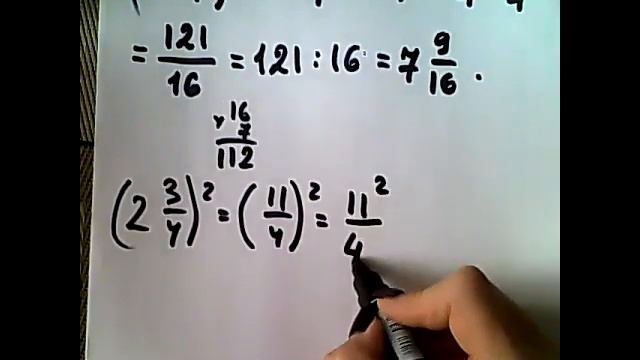 = 121/16 = 121 : 16 = 7 9/16 .
× 16
7
112
(2 3/4)² = (11/4)² = 11²/4